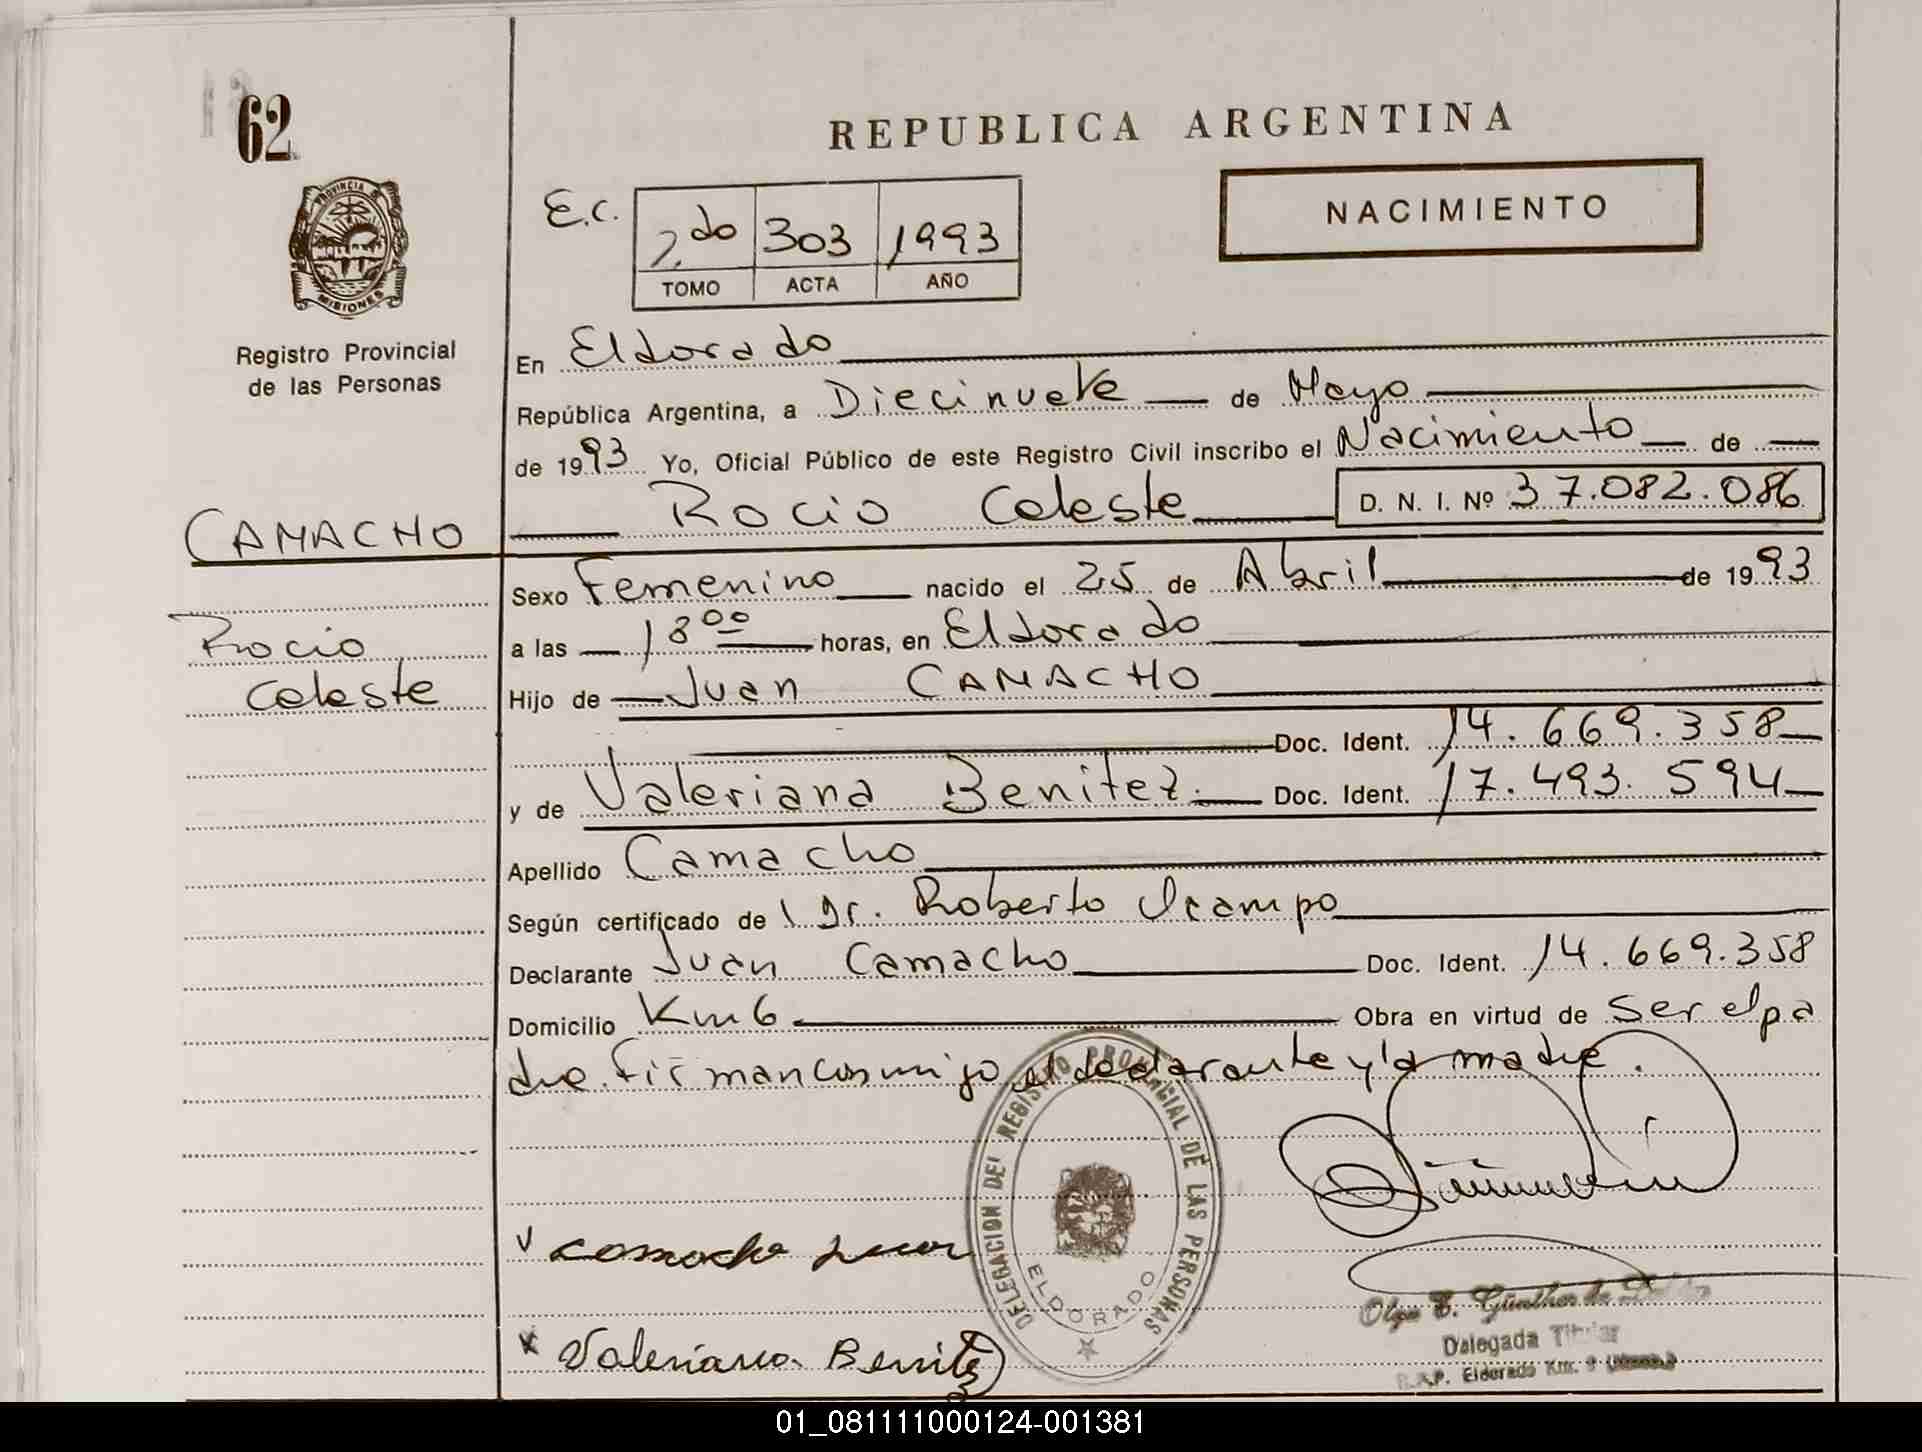 62
REPUBLICA ARGENTINA
NACIMIENTO
E.C. 2do 303 1993
TOMO ACTA AÑO
PROVINCIA DE MISIONES
Registro Provincial
de las Personas
En Eldorado
República Argentina, a Diecinueve de Mayo
de 1993 Yo, Oficial Público de este Registro Civil inscribo el Nacimiento de
Rocio Celeste D. N. I. Nº 37.082.086
CAMACHO
Rocio
Celeste
Sexo Femenino nacido el 25 de Abril de 1993
a las 18 00 horas, en Eldorado
Hijo de Juan CAMACHO
Doc. Ident. 14.669.358
y de Valeriana Benitez Doc. Ident. 17.493.594
Apellido Camacho
Según certificado de Dr. Roberto Ocampo
Declarante Juan Camacho Doc. Ident. 14.669.358
Domicilio Km 6 Obra en virtud de ser el pa
dre. Firman conmigo el declarante y la madre.
DELEGACION DEL REGISTRO PROVINCIAL DE LAS PERSONAS
ELDORADO
Camacho Juan
Valeriana Benitez
Olga E. Günther de
Delegada Titular
R.A.P. Eldorado Km. 9
01_081111000124-001381